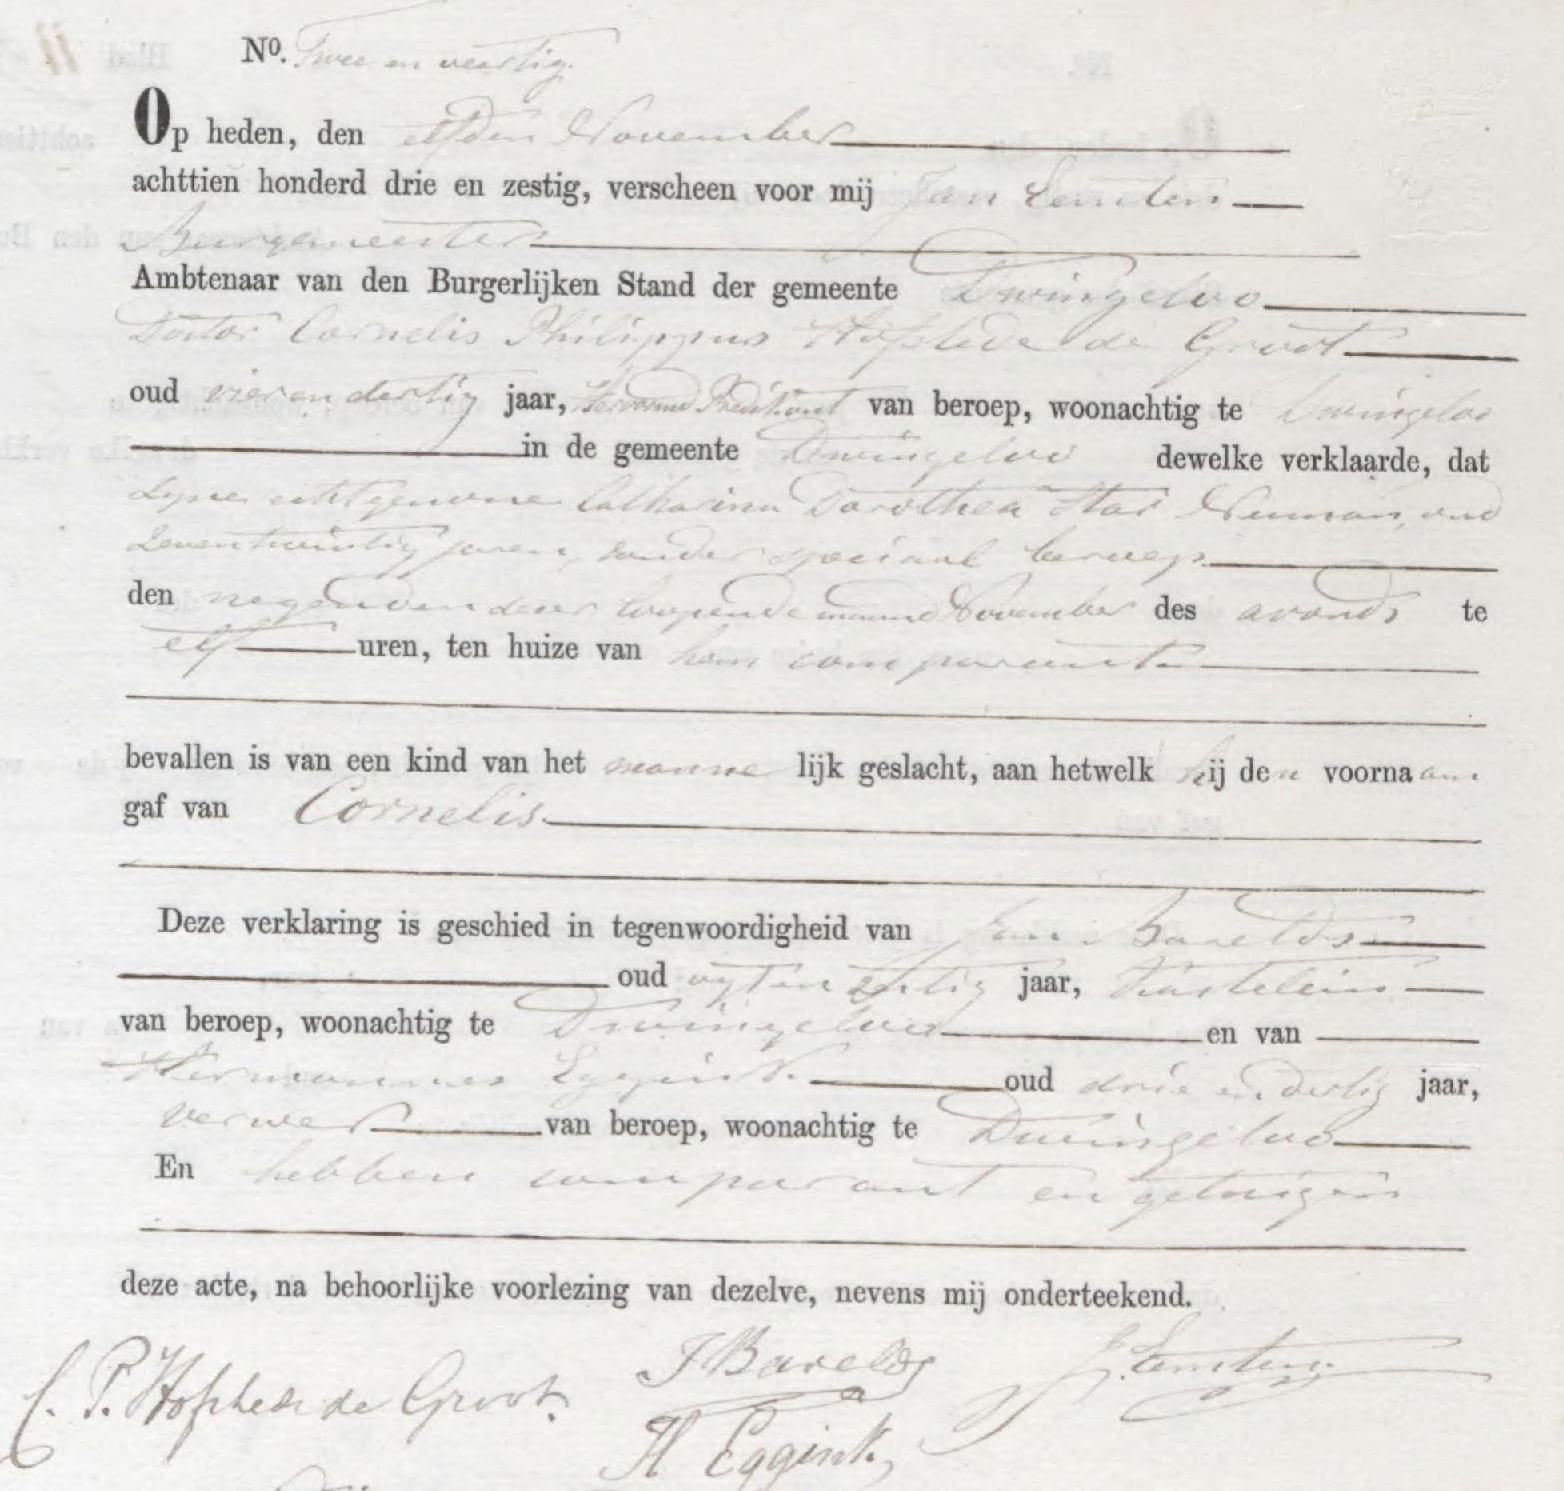 No. Twee en veertig.
Op heden, den elfden November
achttien honderd drie en zestig, verscheen voor mij Jan
Burgemeester
Ambtenaar van den Burgerlijken Stand der gemeente Dwingeloo
Doctor Cornelis Philippus Hofstede de Groot
oud vier en dertig jaar, Hervormd Predikant van beroep, woonachtig te Dwingeloo
in de gemeente Dwingeloo dewelke verklaarde, dat
zijne echtgenoote Catharina Dorothea Star Numan, oud
zeventwintig jaren, zonder speciaal beroep
den negenden dezer loopende maand November des avonds te
elf uren, ten huize van hem comparant
bevallen is van een kind van het manne lijk geslacht, aan hetwelk hij den voornaam
gaf van Cornelis
Deze verklaring is geschied in tegenwoordigheid van Jan Barelds
oud jaar, Kastelein
van beroep, woonachtig te Dwingeloo en van
Hermannes Eggink oud drie en dertig jaar,
verwer van beroep, woonachtig te Dwingeloo
En hebben comparant en getuigen
deze acte, na behoorlijke voorlezing van dezelve, nevens mij onderteekend.
C. P. Hofstede de Groot. J Barelds
H Eggink,